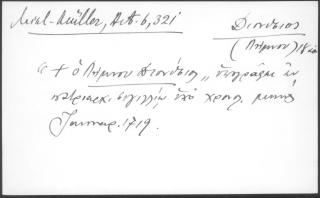 Mikl-Müller, Act. 6, 321
Διονύσιος
(Λήμνου) 18
"+ ὁ Λήμνου Διονύσιος„ ὑπογράφει ἐν
πατριαρχ. σιγιλλίῳ ὑπὸ χρον. μηνὸς
Ἰαννουαρ. 1719.